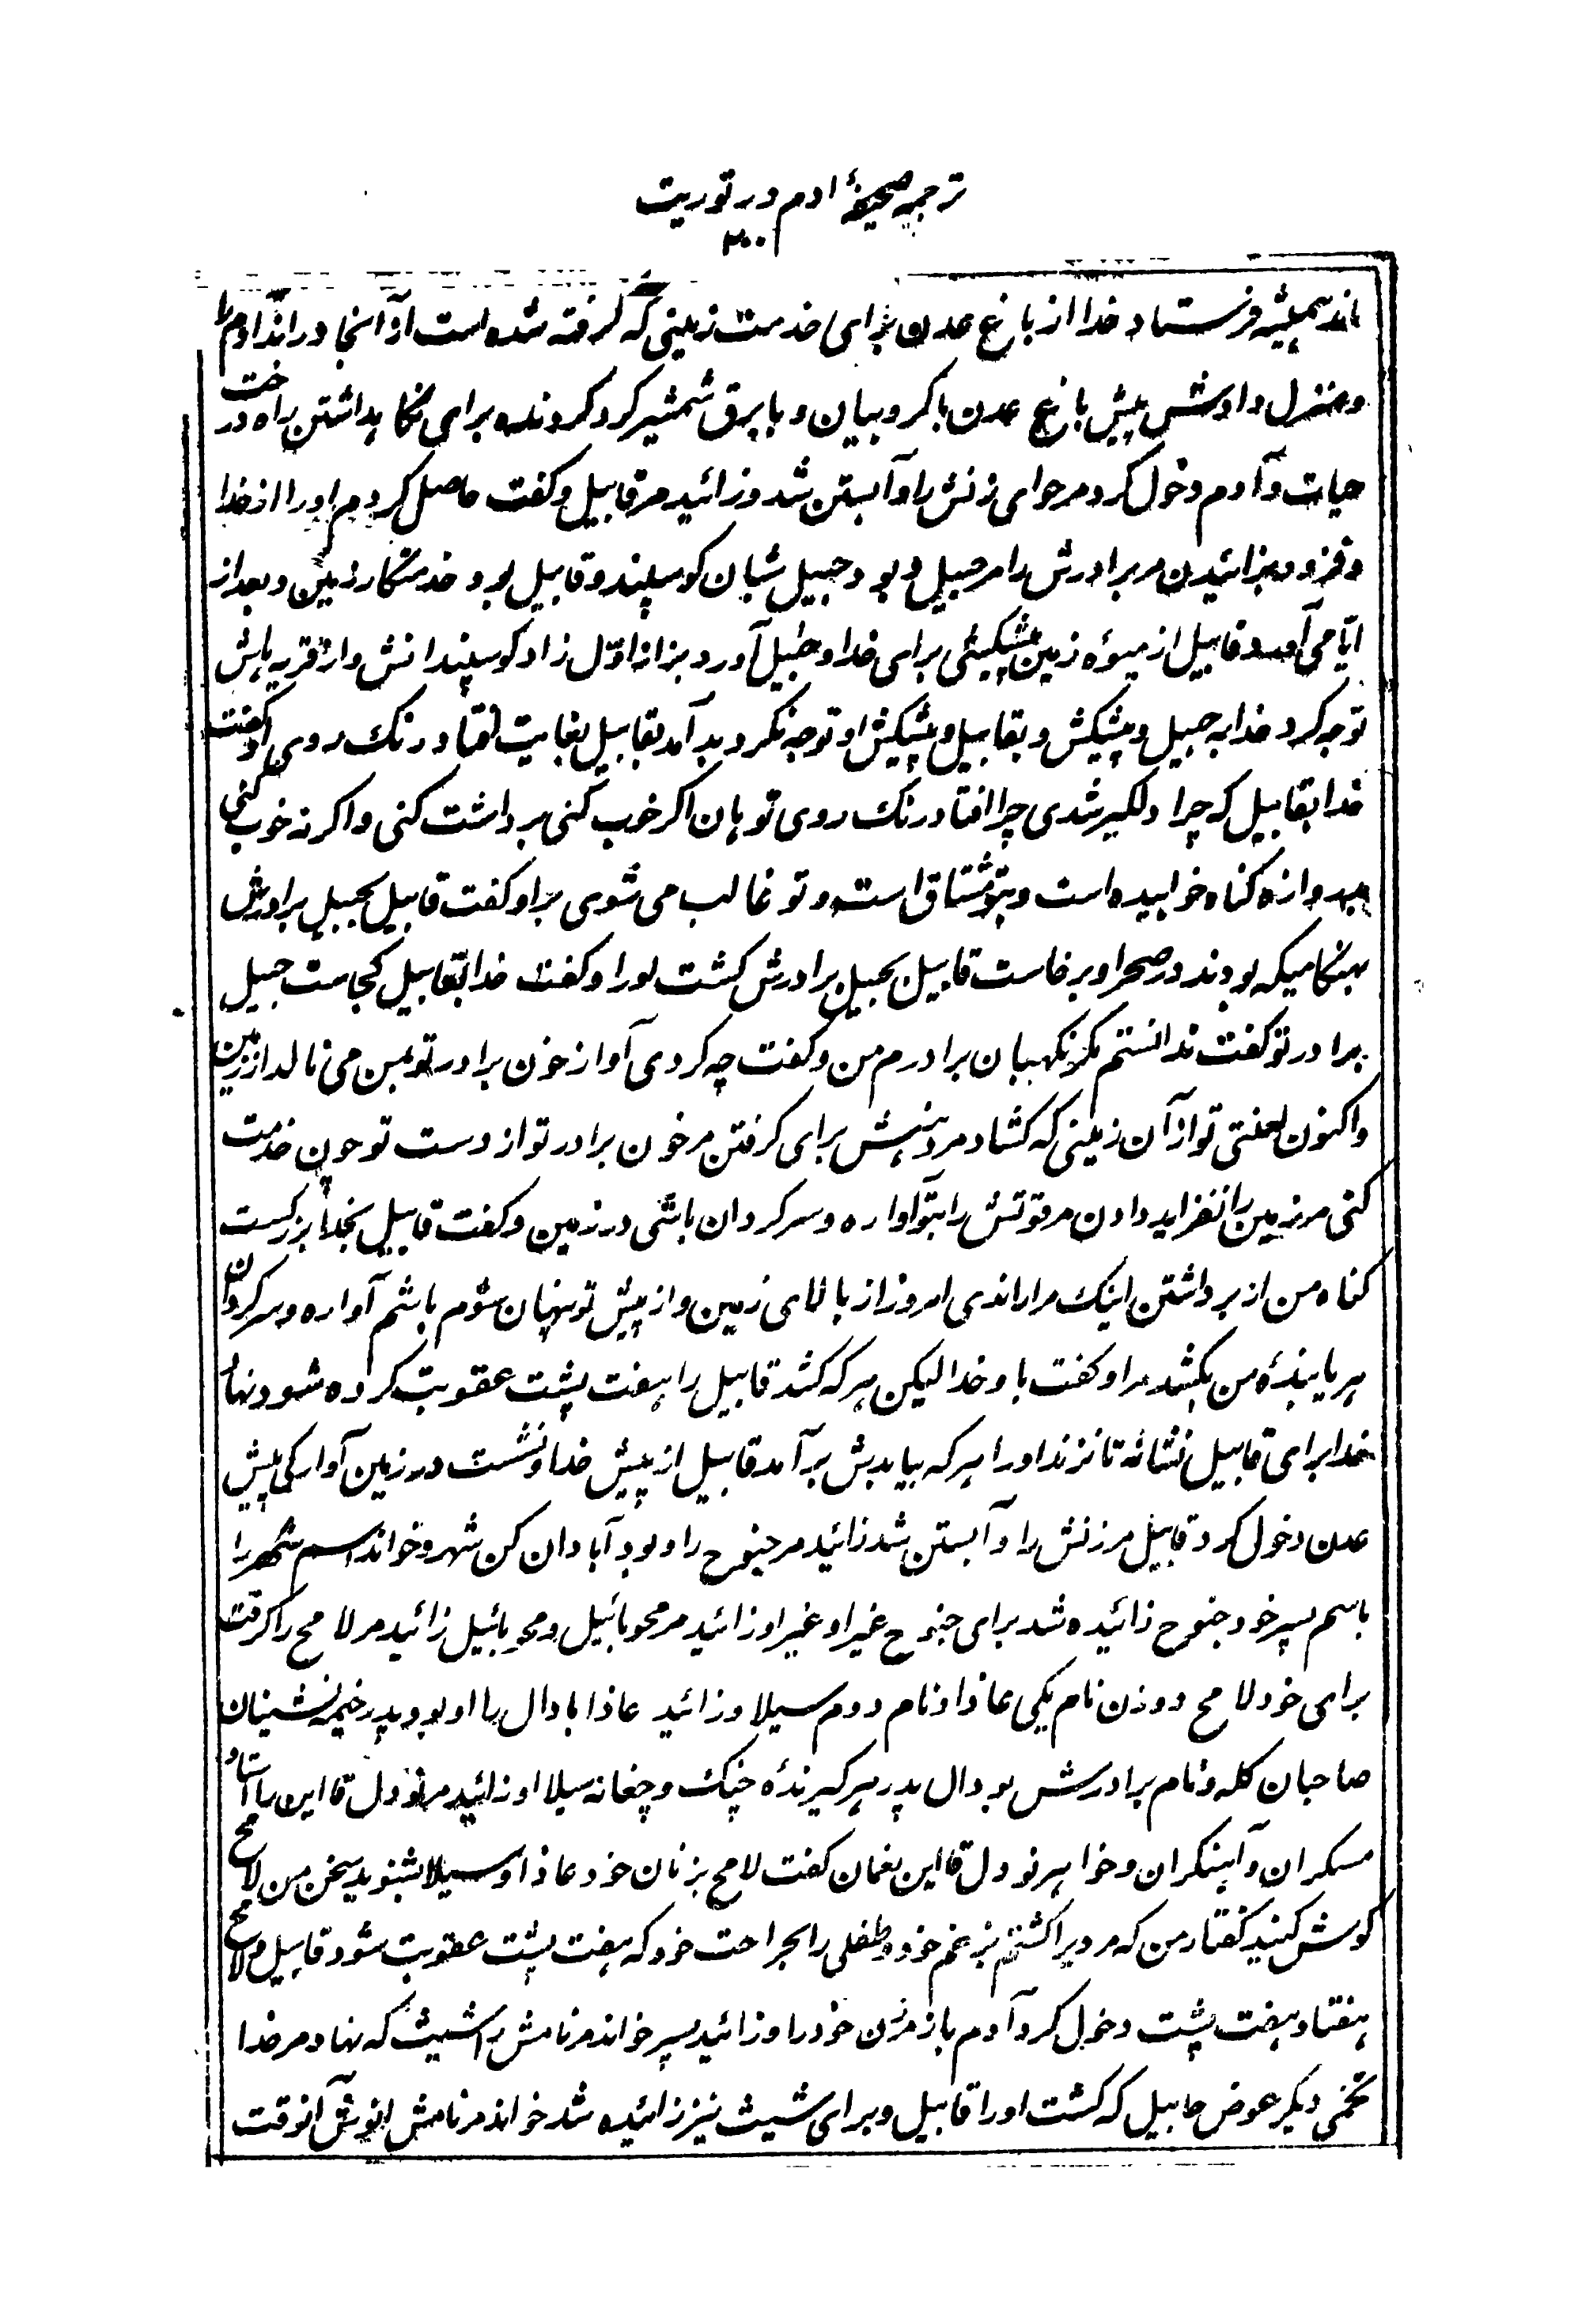 ترجمه صحیفهٔ ادم در توریت
۳۰۰
ماند همیشه فرستاد خدا از باغ عدن برای خدمت زمینی که گرفته شده است از آنجا در راند آدم را
و منزل دادش پیش باغ عدن با کروبیان و با برق شمشیر کرد کردنده برای نکاهداشتن راه درخت
حیات و آدم دخول کرد مر حوای زنش را و آبستن شد و زائید مر قابیل و کفت حاصل کردم اورا از خدا
و فزود بزائیدن مر برادرش را مر حبیل و بود حبیل شبان کوسپند و قابیل بود خدمتکار زمین و بعد از
ایامی آورد قابیل از میوهٔ زمین پیشکشی برای خدا و حبیل آورد بز از اوّل زاد کوسپندانش و از فربه هاش
توجه کرد خدا به حبیل و پیشکش و بقابیل و پیشکش او توجه نکرد بد آمد بقابیل بغایت افتاد رنک روی او کفت
خدا بقابیل که چرا دلکیر شدی چرا افتاد رنک روی تو هان اکر خوب کنی برداشت کنی و اکر نه خوب کنی
بدروازه کناه خوابیده است و بتو مشتاق است و تو غالب می شوی براو کفت قابیل بحبیل برادرش
بهنکامیکه بودند در صحرا و برخاست قابیل بحبیل برادرش کشت اورا و کفت خدا بقابیل کجاست حبیل
برادر تو کفت ندانستم مکر نکهبان برادرم من و کفت چه کردی آواز خون برادر تو بمن می نالد از زمین
و اکنون لعنتی تو از آن زمینی که کشاد مر دهنش برای کرفتن مر خون برادر تو از دست تو چون خدمت
کنی مر زمین را نفزاید دادن مر قوتش را بتو آواره و سرکردان باشی در زمین و کفت قابیل بخدا بزرکست
کناه من از برداشتن اینک مرا راندی امروز از بالای زمین و از پیش تو پنهان شوم باشم آواره و سرکردان
هر یابندهٔ من بکشد مرا و کفت با و خدا لیکن هر که کشد قابیل را هفت پشت عقوبت کرده شود نهاد
خدا برای قابیل نشانه تا نزند اورا هر که بیابدش بر آمد قابیل از پیش خدا و نشست در زمین آوارکی پیش
عدن دخول کرد قابیل مر زنش را و آبستن شد زائید مر حنوح را و بود آبادان کن شهر و خواند اسم شهر را
باسم پسر خود حنوح زائیده شد برای حنوح غیراو غیراو زائید مر محویائیل و محویائیل زائید مر لامح را کرفت
برای خود لامح دو زن نام یکی عاذا و نام دوم سیلا و زائید عاذا بادال را او بود پدر خیمه نشینان
صاحبان کله و نام برادرش بودال پدر هر کیرندهٔ چنک و چغانه سیلا او زائید مر نودل قاین را استاد
مسکران و آهنکران و خواهر نودل قاین نعمان کفت لامح بزنان خود عاذا و سیلا بشنوید سخن من لامح
کوش کنید کفتار من که مردیرا کشتم بزعم خود و طفلی را بجراحت خود که هفت پشت عقوبت شود قابیل و لامح
هفتاد و هفت پشت دخول کرد آدم باز مر زن خود را و زائید پسر خواند مر نامش را شیث که نهاد مر خدا
تخمی دیکر عوض هابیل که کشت اورا قابیل و برای شیث نیز زائیده شد خواند مر نامش انوش آنوقت